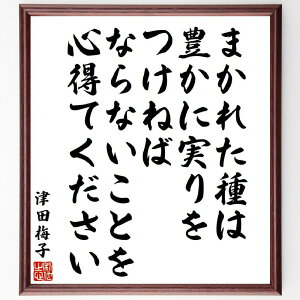 まかれた種は
豊かに実りを
つけねば
ならないことを
心得てください
津田梅子